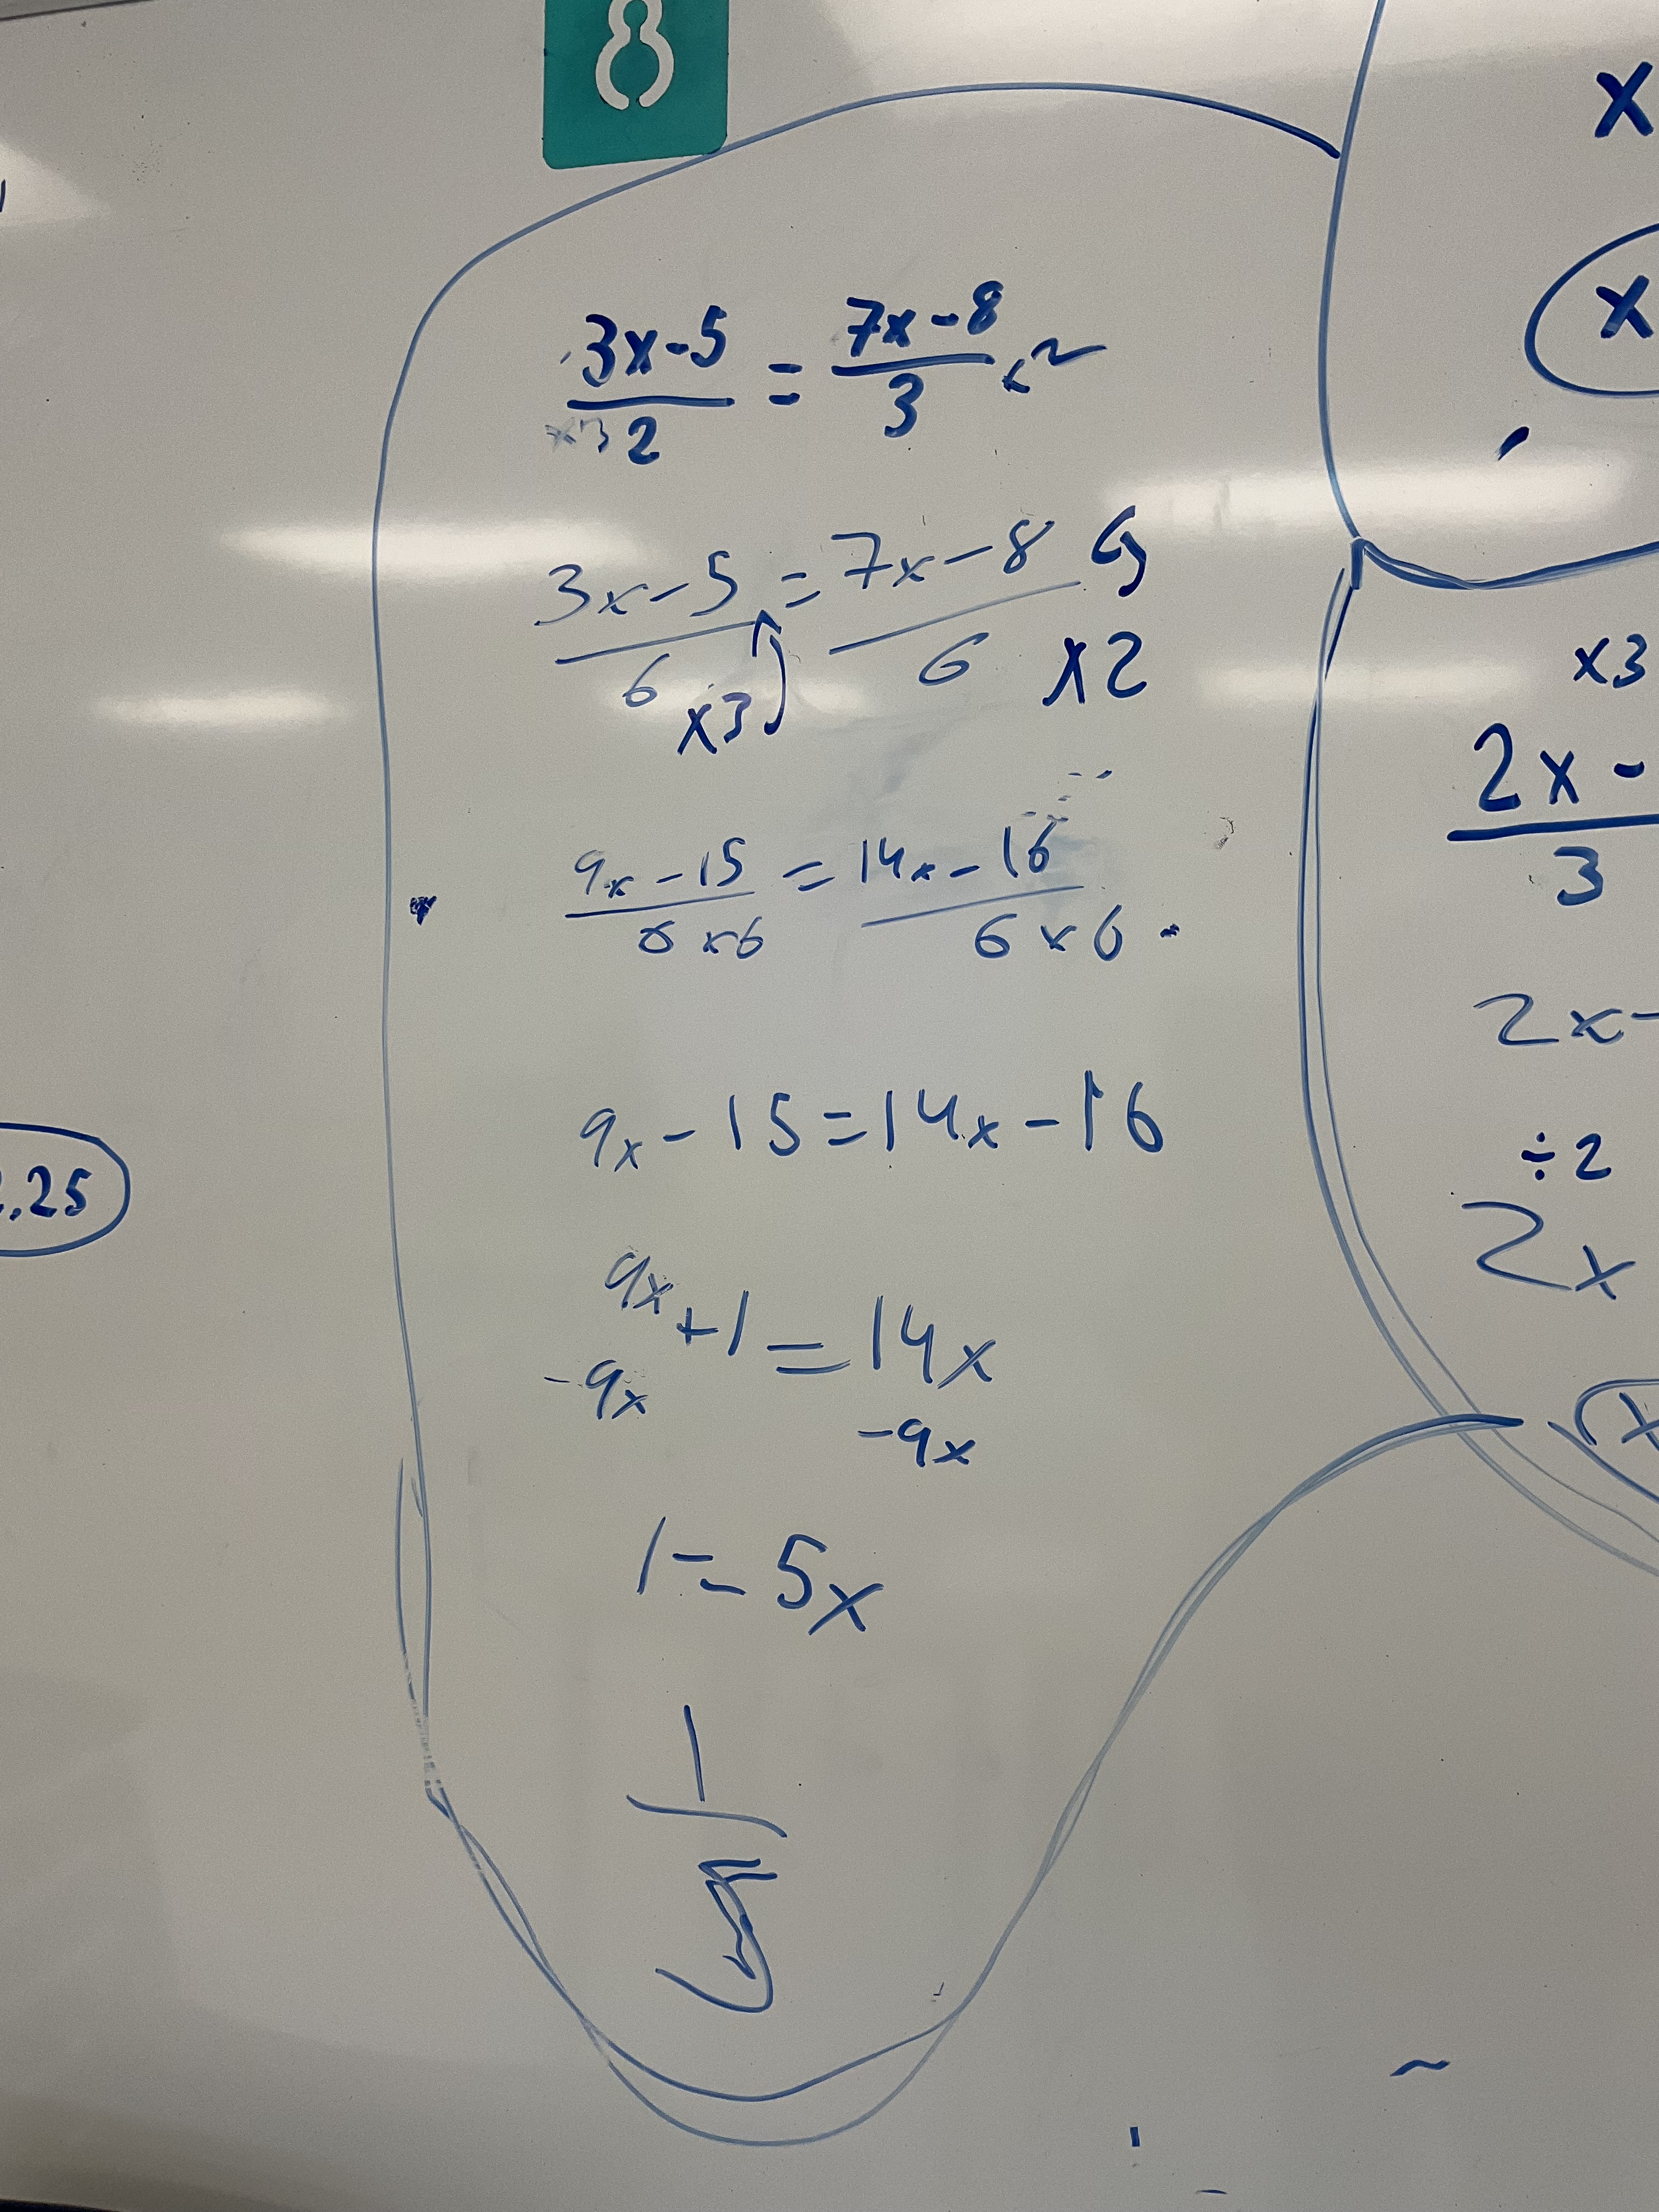 8
3x-5/2 = 7x-8/3
x3
3x-5/6 = 7x-8/6
x3 x2
9x-15/6 x6 = 14x-16/6 x6
9x-15=14x-16
9x+1=14x
-9x -9x
1=5x
1/5
.25
x
x
x3
2x-
3
2x-
÷2
2x
x